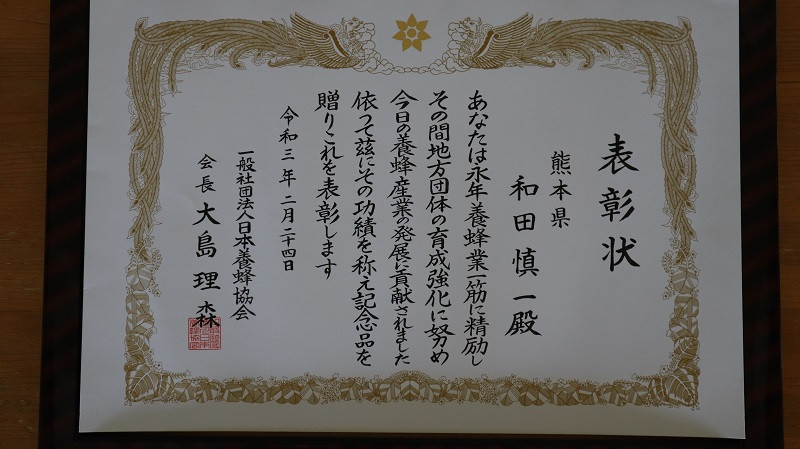 表彰状
熊本県
和田慎一殿
あなたは永年養蜂業一筋に精励し
その間地方団体の育成強化に努め
今日の養蜂産業の発展に貢献されました
依つて茲にその功績を称え記念品を
贈りこれを表彰します
令和三年二月二十四日
一般社団法人日本養蜂協会
会長 大島理森